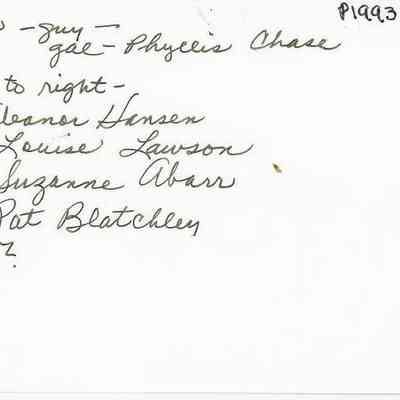 P1993
- guy -
gal - Phyllis Chase
to right -
Eleanor Hansen
Louise Lawson
Suzanne Abarr
Pat Blatchley